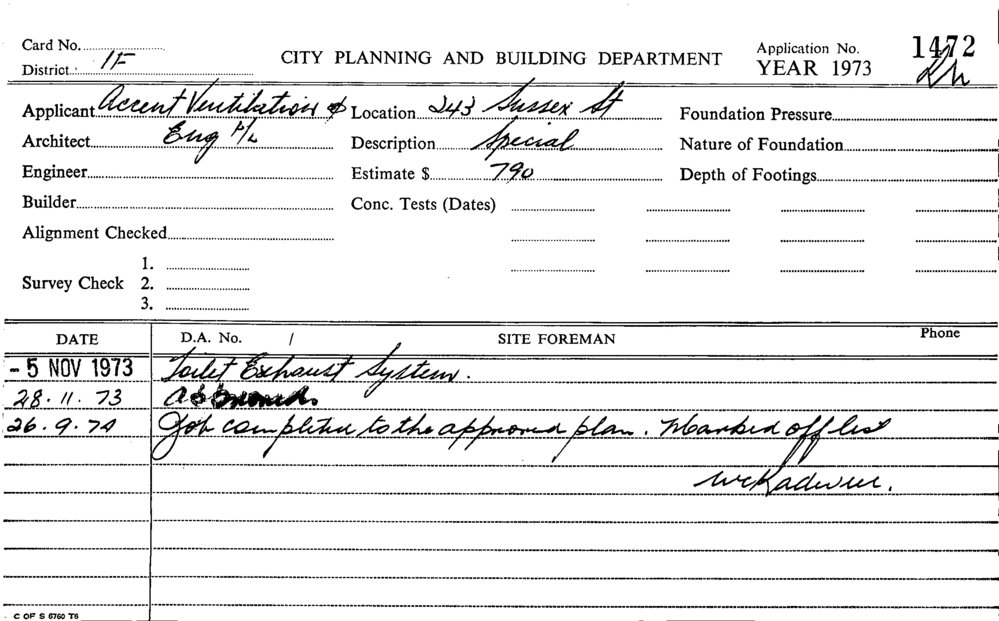 Card No.
District. 1F
CITY PLANNING AND BUILDING DEPARTMENT
Application No. 1472
YEAR 1973
Applicant Accent Ventilation & Location 243 Sussex St Foundation Pressure
Architect Eng P/L Description Special Nature of Foundation
Engineer Estimate $ 790 Depth of Footings
Builder Conc. Tests (Dates)
Alignment Checked
1.
Survey Check 2.
3.
DATE D.A. No. / SITE FOREMAN Phone
- 5 NOV 1973 Toilet Exhaust System.
28.11.73 Approved.
26.9.74 Job completed to the approved plan. Marked off list
C OF S 6760 T6